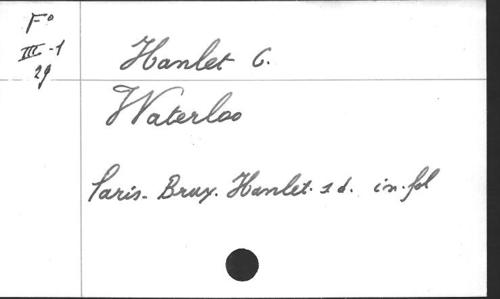 F°
III-1
29
Hanlet C.
Waterloo
Paris-Brux. Hanlet. s d. in-fol